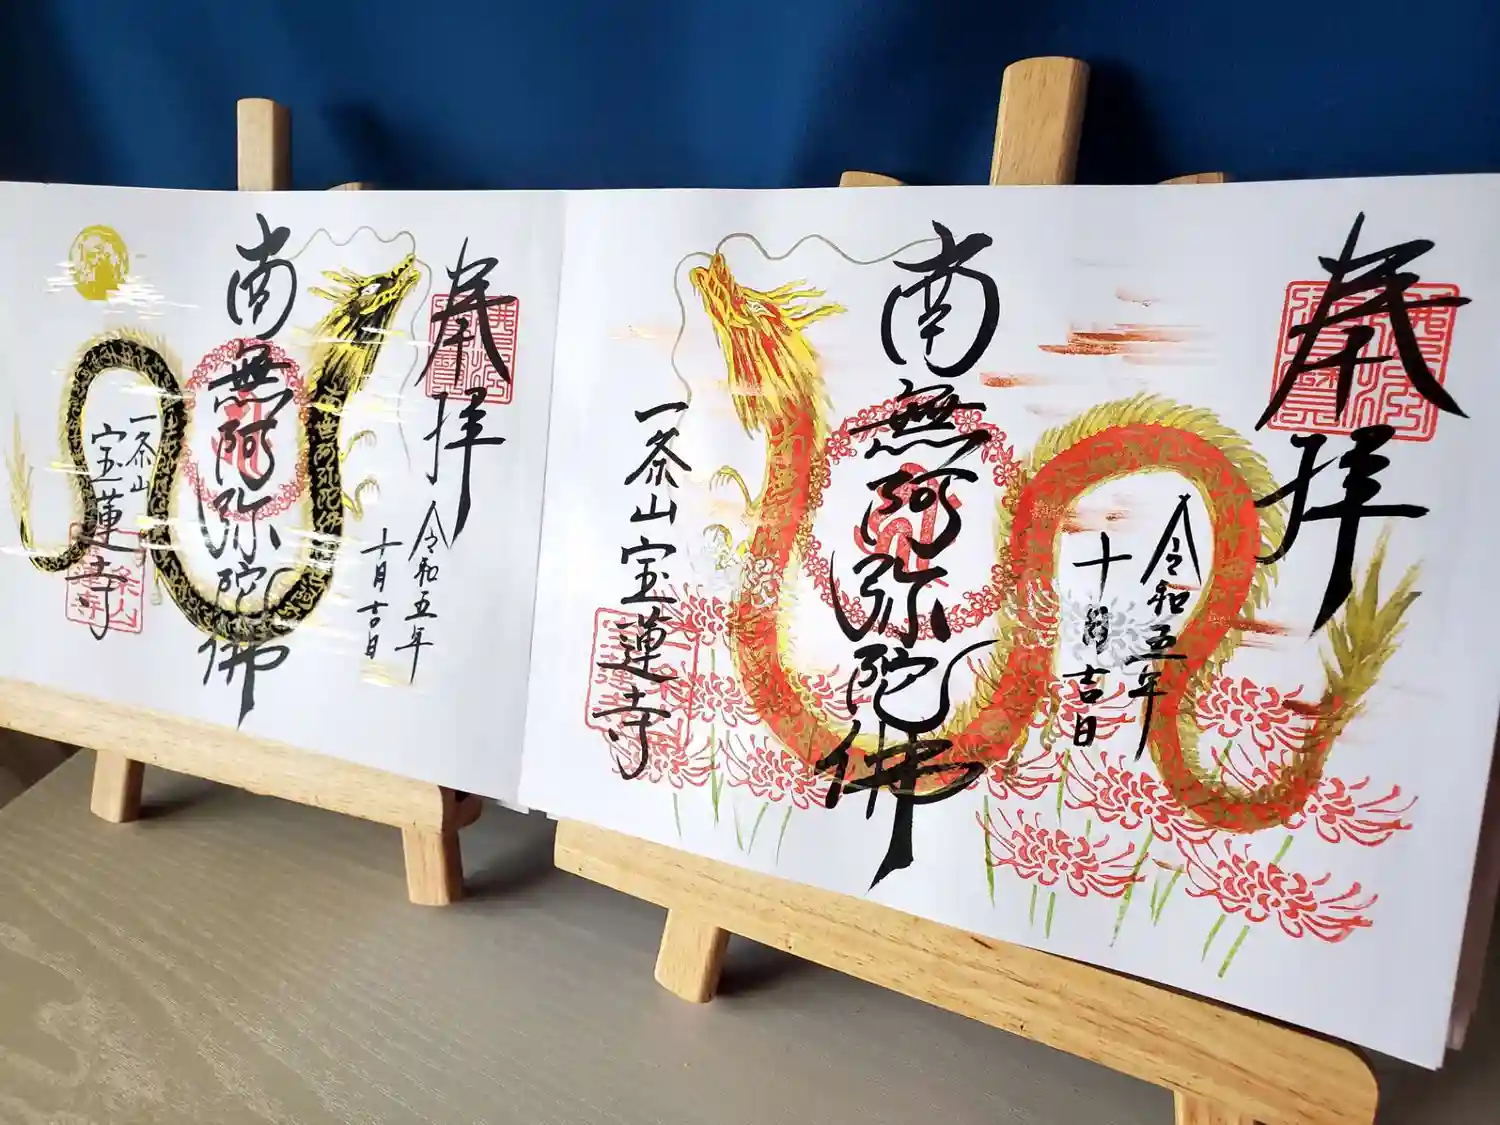 奉拝
令和五年
十月吉日
南無阿弥陀佛
一茶山
宝蓮寺
奉拝
令和五年
十月吉日
南無阿弥陀佛
一茶山宝蓮寺